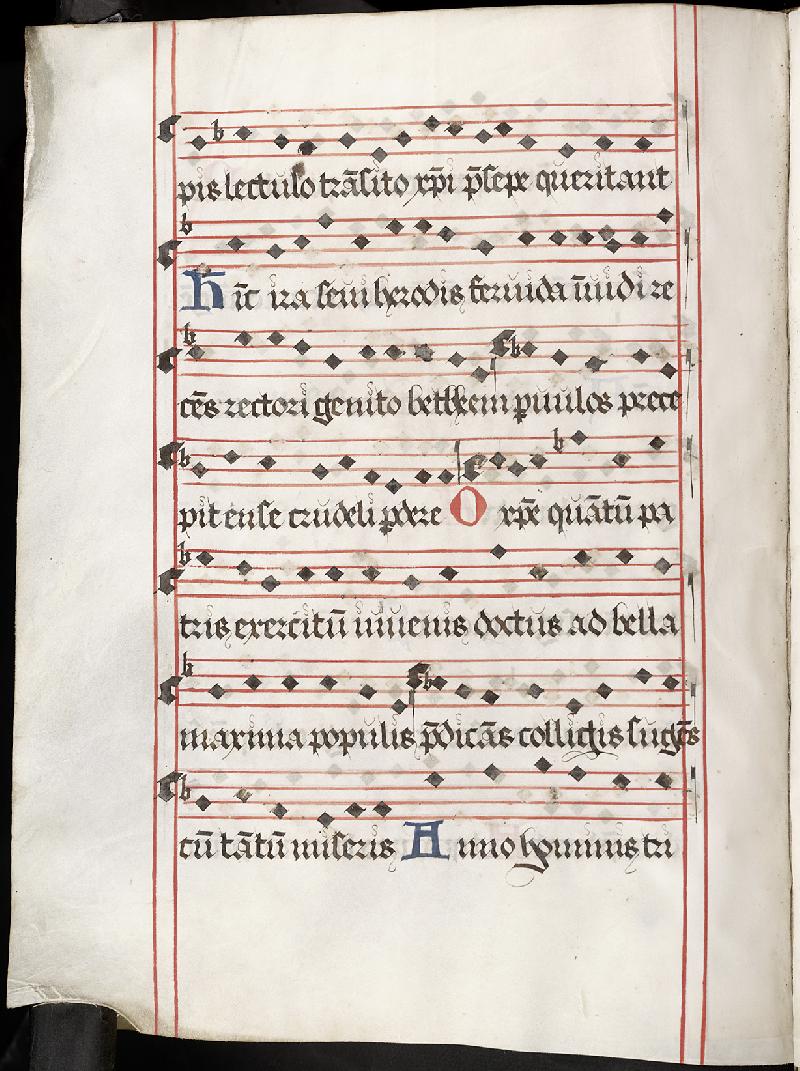 pis lectulo trāsito xp̄i p̄sepe queritant
Hīc ira seui herodis feruida īuidi re
cēs rectori genito bethleem puulos prece
pit ense crudeli pdere O xp̄e quātū pa
tris exercitū iuuenis doctus ad bella
maxima populis p̄dicās colligis sugēs
cū tātū miseris Anno hominis tri